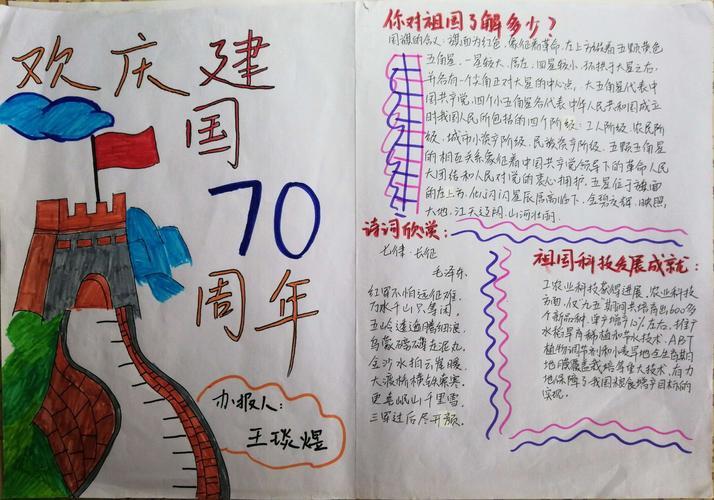 欢庆建
国
70
周年
办报人:
王琰煜
你对祖国了解多少?
国旗的含义:旗面为红色,象征着革命,左上方缀着五颗黄色
五角星,一星较大,居左,四星较小,环拱于大星之右,
并各有一个尖角正对大星的中心点,大五角星代表中
国共产党,四个小五角星各代表中华人民共和国成立
时我国人民所包括的四个阶级:工人阶级,农民阶
级,城市小资产阶级,民族资产阶级,五颗五角星
的相互关系象征着中国共产党领导下的革命人民
大团结和人民对党的衷心拥护,五星位于旗面
的左上方,似闪闪星辰居高临下,金碧交辉,映照
大地,江天辽阔,山河壮丽
诗词欣赏:
七律·长征
毛泽东
红军不怕远征难,
万水千山只等闲,
五岭逶迤腾细浪,
乌蒙磅礴走泥丸,
金沙水拍云崖暖,
大渡桥横铁索寒
更喜岷山千里雪,
三军过后尽开颜,
祖国科技发展成就:
工农业科技蓬勃进展,农业科技
方面,仅九五期间共培育出600多
个新品种,单产增产12%左右,
水稻旱育稀植和节水技术,ABT
植物调节剂和小麦旱地全生育期
地膜覆盖栽培等重大技术,有力
地保障了我国粮食增产目标的
实现。